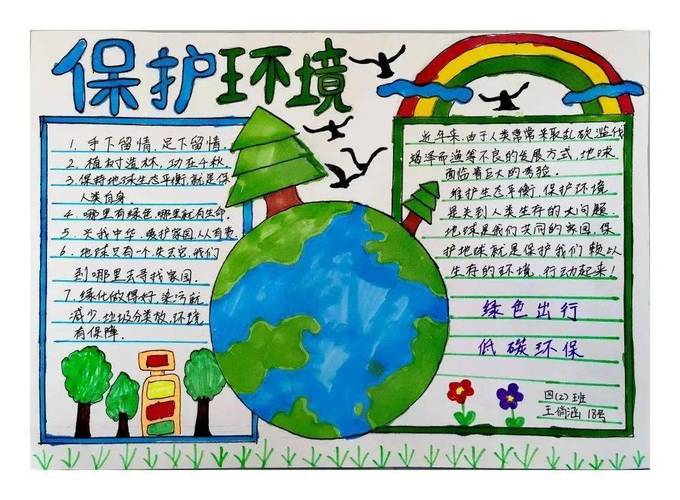 保护环境
1. 手下留情,足下留情.
2. 植树造林,功在千秋.
3. 保持地球生态平衡,就是保
人类自身.
4. 哪里有绿色,哪里就有生命.
5. 兴我中华,爱护家园,人人有责.
6. 地球只有一个,失去它,我们
到哪里去寻找家园.
7. 绿化做得好,染污就
减少,垃圾分类放,环境
有保障.
近年来,由于人类常常采取乱砍滥伐
竭泽而渔等不良的发展方式,地球
面临着巨大的考验.
维护生态平衡,保护环境
是关到人类生存的大问题.
地球是我们共同的家园,保
护地球就是保护我们赖以
生存的环境,行动起来!
绿色出行
低碳环保
四(2)班
18号